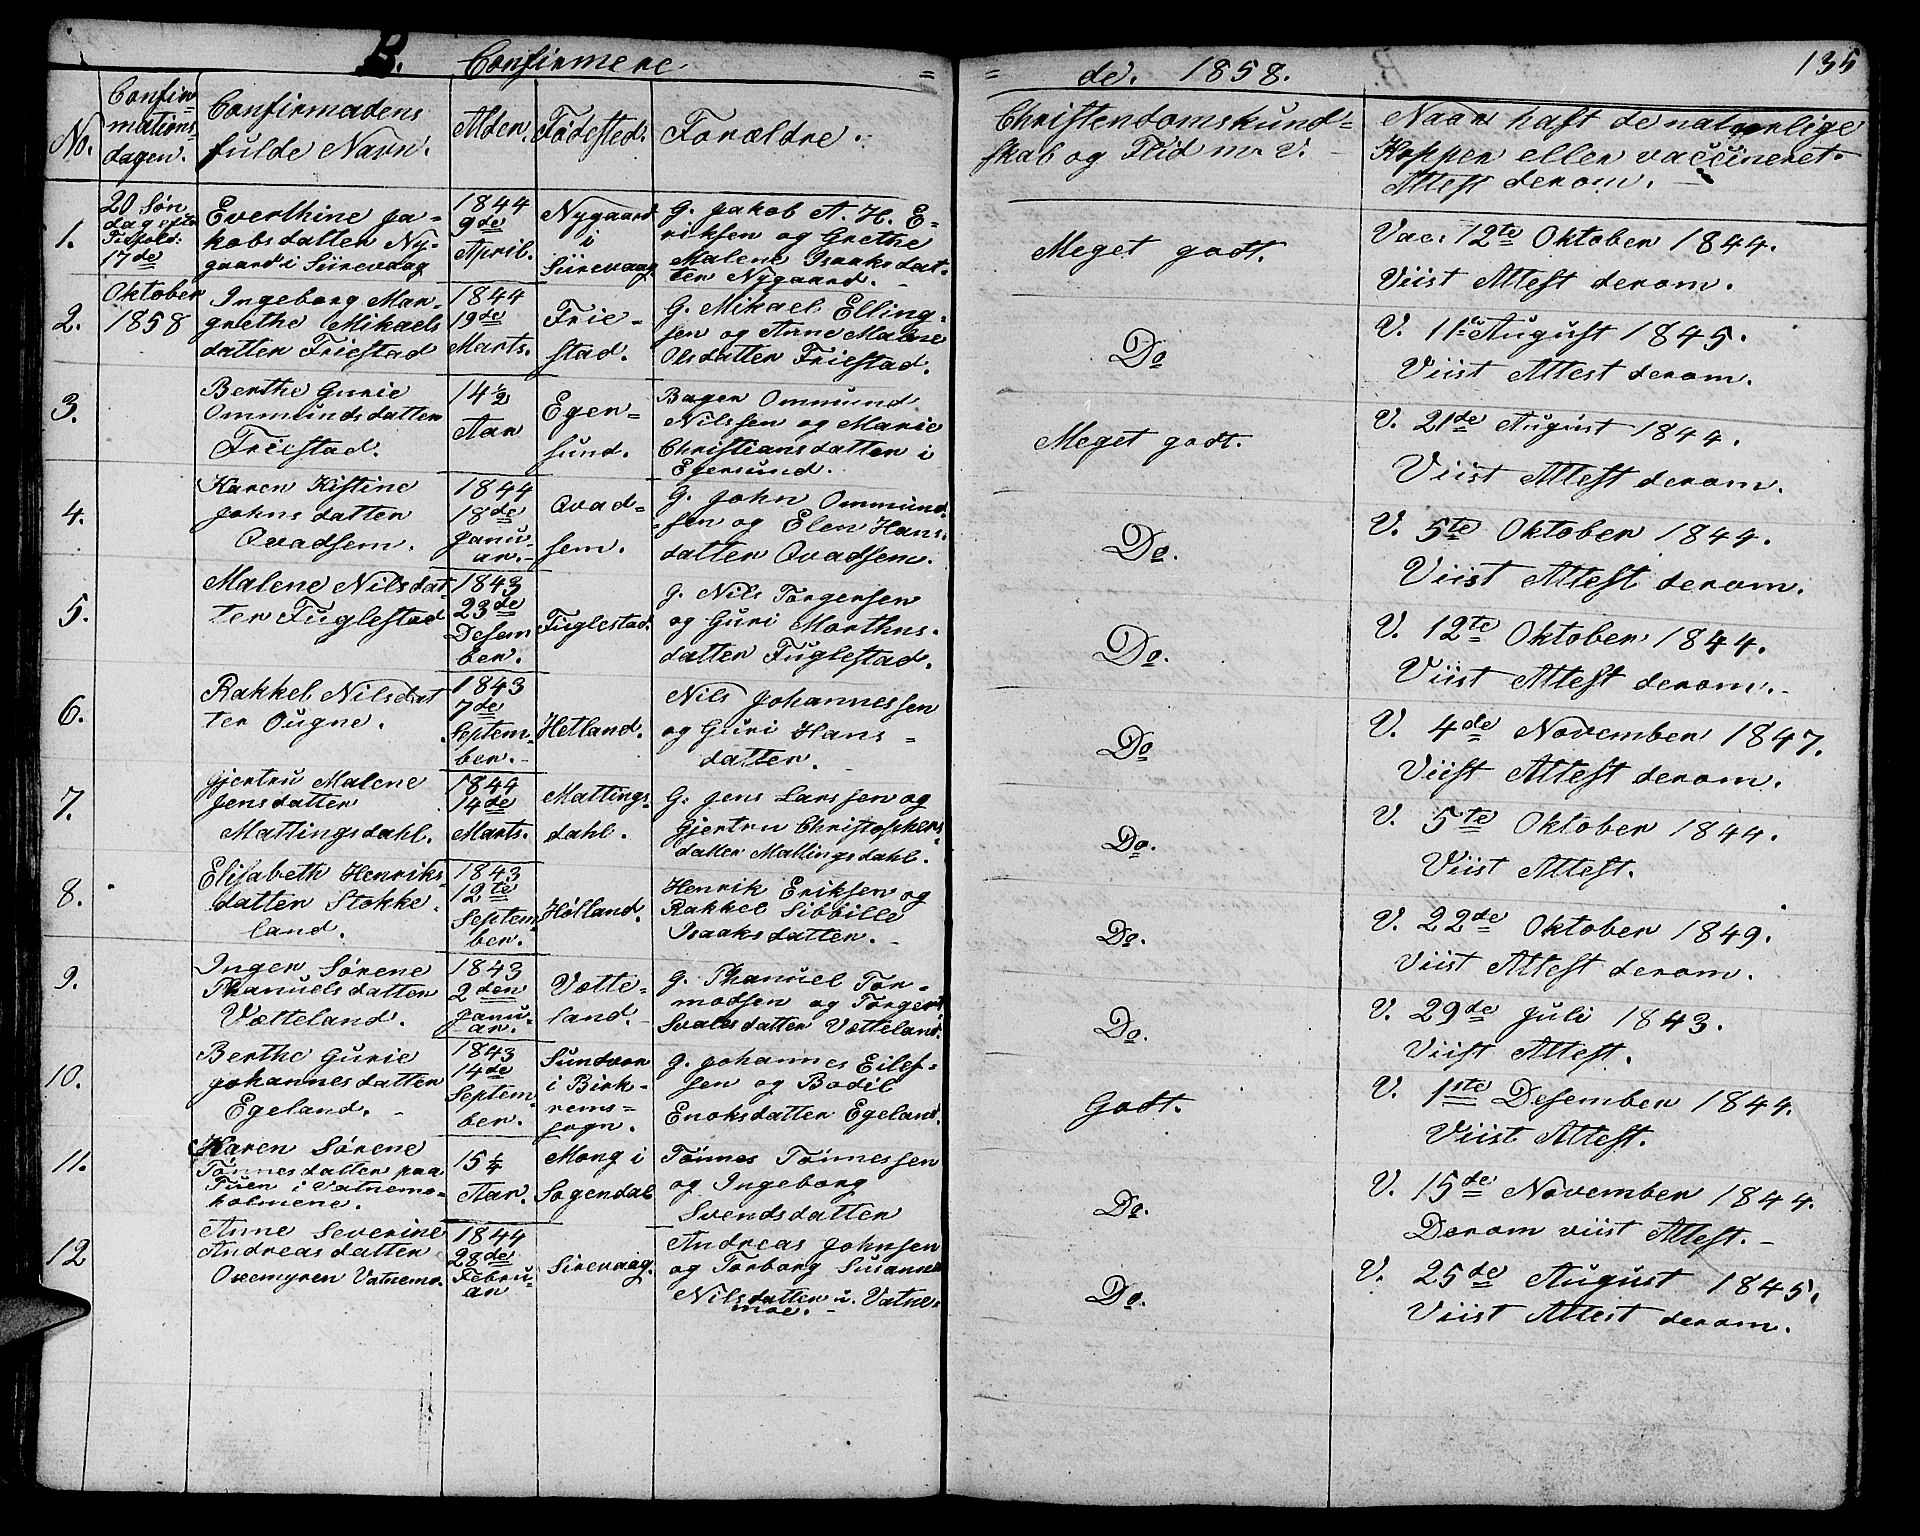 B. Confirmere =
= de. 1858. 135
No.
Confir-
mations-
dagen.
Confirmadens
fulde Navn.
Alder.
Fødested.
Forældre.
Christendomskund=
skab og Flid m. V.
Naar haft de naturlige
Kopper eller vaccineret.
Attest derom.
1.
20 Søn
dag efter
Trefold:
17de
Oktober
1858
Everthine Ja-
kobsdatter Ny-
gaard i Siirevaag
1844
9de
April.
Nygaard
i
Siirevaag
G. Jakob A. H. E-
riksen og Grethe
Malene Isaaksdat-
ter Nygaard.
Meget godt.
Vac. 12te Oktober 1844.
Viist Attest derom.
2.
Ingeborg Mar-
grethe Mikaels
datter Friestad
1844
19de
Marts.
Frie-
stad.
G. Mikael Elling-
sen og Anne Malne
Olsdatter Friestad.
Do
V. 11te August 1845.
Viist Attest derom.
3.
Berthe Gurie
Ommundsdatter
Friestad.
14½
Aar
Eger=
sund.
Bager Ommund
Nilssen og Marie
Christiansdatter i
Egersund.
Meget godt.
V. 21de August 1844.
Viist Attest derom.
4.
Karen Kistine
Johnsdatter
Qvadsem.
1844
18de
Janu-
ar.
Qvad-
sem.
G. John Ommund-
sen og Elen Hans-
datter Qvadsem.
Do.
V. 5te Oktober 1844.
Viist Attest derom.
5.
Malene Nilsdat-
ter Fuglestad
1843
23de
Desem
ber.
Fuglestad.
G. Nils Torgersen
og Guri Morthns-
datter Fuglestad.
Do.
V. 12te Oktober 1844.
Viist Attest derom.
6.
Rakkel Nilsdat
ter Ougne.
1843
7de
Septem-
ber.
Hetland.
Nils Johannessen
og Guri Hans=
datter.
Do
V. 4de November 1847.
Viist Attest derom.
7.
Gjertru Malene
Jensdatter
Mattingsdahl.
1844
14de
Marts.
Mattings-
dahl.
G. Jens Larssen og
Gjertru Christophers-
datter Mattingsdahl.
Do.
V. 5te Oktober 1844.
Viist Attest.
8.
Elisabeth Henriks-
datter Stokke-
land.
1843
12te
Septem
ber.
Hølland.
Henrik Eriksen og
Rakkel Sibbille
Isaaksdatter.
Do.
V. 22de Oktober 1849.
Viist Attest derom.
9.
Inger Sørene
Thanuelsdatter
Vætteland.
1843
2den
Janu-
ar.
Vætte-
land.
G. Thanuel Tor-
modsen og Torgeri
Svalesdatter Vætteland.
Do.
V. 29de Juli 1843.
Viist Attest.
10.
Berthe Gurie
Johannesdatter
Egeland.
1843
14de
Septem-
ber.
Sundvor
i Birk-
rems=
sogn.
G. Johannes Eilef-
sen og Bodil
Enoksdatter Egeland.
Godt.
V. 1ste Desember 1844.
Viist Attest.
11.
Karen Sørene
Tønnesdatter paa
Tuen i Vatnemo-
holmene.
15¼
Aar.
Mong i
Sogendal
Tønnes Tønnessen
og Ingeborg
Svendsdatter
Do.
V. 15de November 1844.
Derom viist Attest.
12
Anne Severine
Andreasdatter
Oremyren Vatnemo.
1844
28de
Febru-
ar
Sirevaag.
Andreas Johnsen
og Torborg Susanne
Nilsdatter i. Vatne-
moe.
Do.
V. 25de August 1845.
Viist Attest derom.